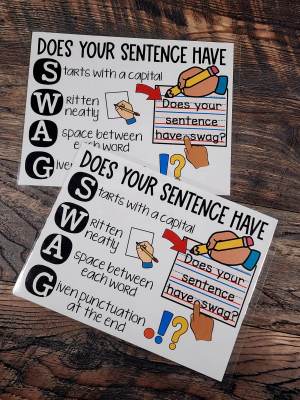 DOES YOUR SENTENCE HAVE
Starts with a capital
Written
neatly
A space between
each word
Given
Does your
sentence
have swag?
!?
DOES YOUR SENTENCE HAVE
Starts with a capital
Written
neatly
A space between
each word
Given punctuation
at the end
Does your
sentence
have swag?
.!?